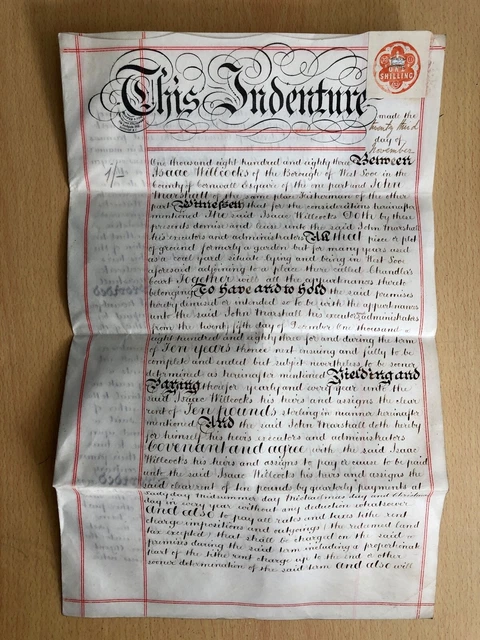 ONE
SHILLING
This Indenture
made the
twenty third
day of
November
One thousand eight hundred and eighty three Between
Isaac Willcocks of the Borough of West Looe in the
County of Cornwall Esquire of the one part and John
Marshall of the same place Fisherman of the other
part Witnesseth that for the considerations hereinafter
mentioned The said Isaac Willcocks Doth by these
presents demise and lease unto the said John Marshall
his executors and administrators All that piece or plot
of ground formerly a garden but for many years used
as a coal yard situate lying and being in West Looe
aforesaid adjoining to a place there called Chandler's
Court Together with all the appurtenances thereto
belonging To have and to hold the said premises
hereby demised or intended so to be with the appurtenances
unto the said John Marshall his executors administrators
from the twenty fifth day of December One thousand
eight hundred and eighty three for and during the term
of Ten years thence next ensuing and fully to be
complete and ended but subject nevertheless to be sooner
determined as hereinafter mentioned Yielding and
Paying therefor yearly and every year unto the
said Isaac Willcocks his heirs and assigns the clear
rent of Ten pounds sterling in manner hereinafter
mentioned And the said John Marshall doth hereby
for himself his heirs executors and administrators
Covenant and agree with the said Isaac
Willcocks his heirs and assigns to pay or cause to be paid
unto the said Isaac Willcocks his heirs and assigns the
said clear rent of ten pounds by quarterly payments at
Lady day Midsummer day Michaelmas day and Christmas
day in every year without any deduction whatsoever
and also to pay all rates and taxes tithe rent
charge impositions and outgoings (the redeemed land
tax excepted) that shall be charged on the said
premises during the said term including a proportionate
part of the tithe rent charge up to the end or other
sooner determination of the said term and also will